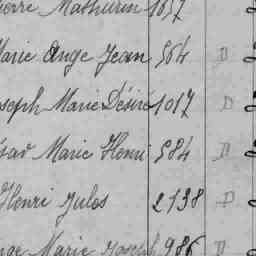 ierre Mathurin 1657
Marie Ange Jean 564 D
oseph Marie Désiré 1017 D
ésar Marie Henri 584 D
Henri Jules 2138 D
nge Marie Joseph 986 D